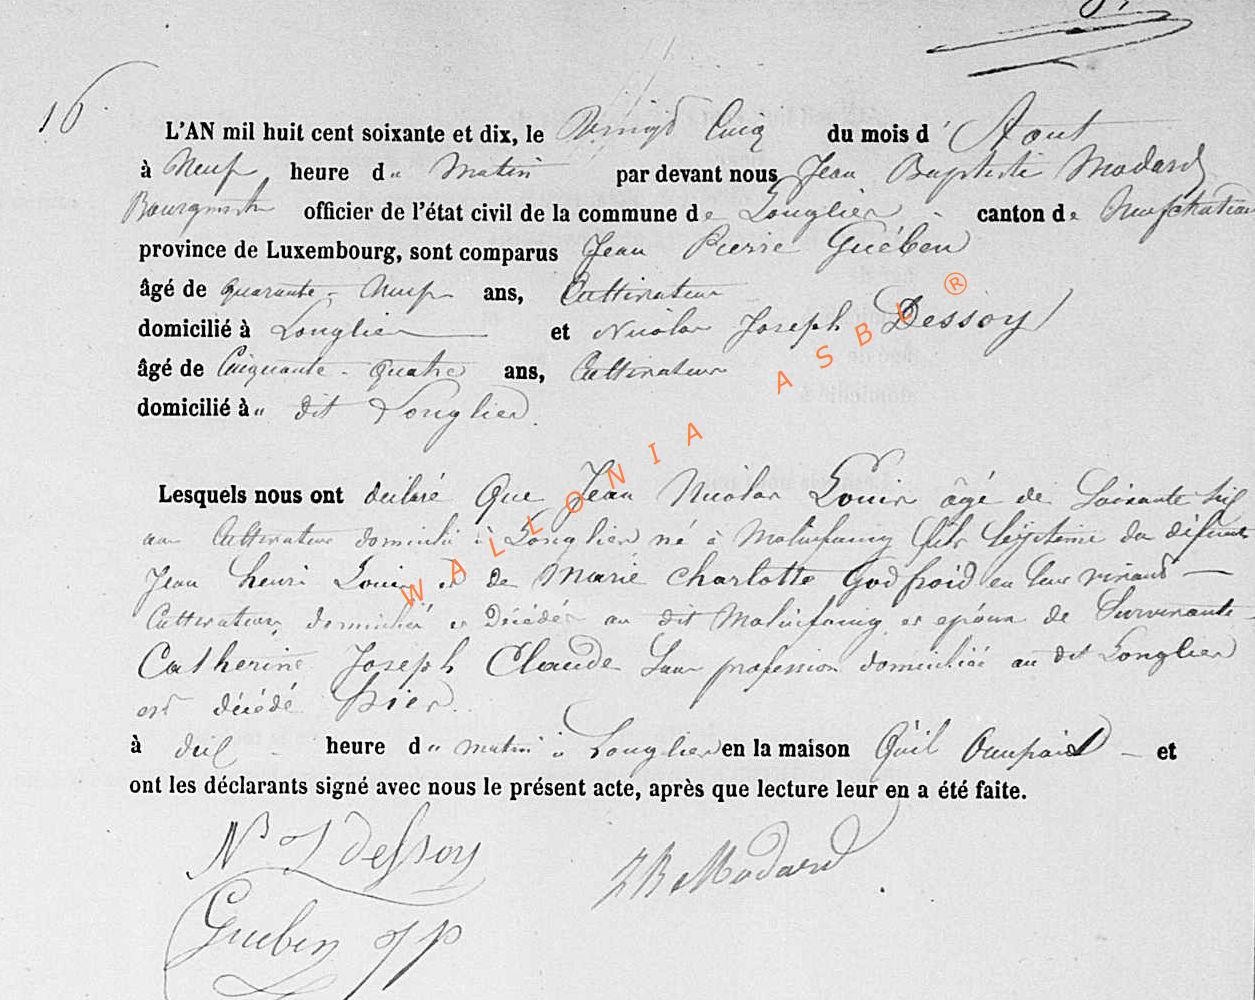 16
L'AN mil huit cent soixante et dix, le Vingt Cinq du mois d' Aout
à Neuf heure du Matin par devant nous Jean Baptiste Modard
Bourgmestre officier de l'état civil de la commune de Longlier canton de Neufchateau
province de Luxembourg, sont comparus Jean Pierre Guében
âgé de quarante-Neuf ans, Cultivateur
domicilié à Longlier et Nicolas Joseph Dessoy
âgé de Cinquante-quatre ans, Cultivateur
domicilié à dit Longlier
Lesquels nous ont déclaré Que Jean Nicolas Louis âgé de Soixante six
ans Cultivateur domicilié à Longlier né à Molinfaing fils légitime de défunt
Jean henri Louis et de Marie Charlotte Godfroid en leur vivant
Cultivateurs, domiciliés et Décédés au dit Molinfaing et époux de Survivante
Catherine Joseph Claude Sans profession domiciliée au dit Longlier
est décédé hier
à dix heure du matin à Longlier en la maison Qu'il Occupait et
ont les déclarants signé avec nous le présent acte, après que lecture leur en a été faite.
N J Dessoy
JB Modard
Gueben JP
WALLONIA ASBL ®